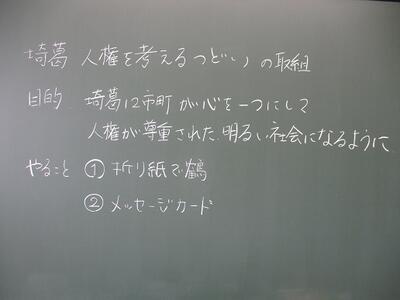 埼葛 人権を考えるつどい の取組
目的 埼葛12市町が心を一つにして
人権が尊重された、明るい社会になるように
やること ① 折り紙で鶴
② メッセージカード